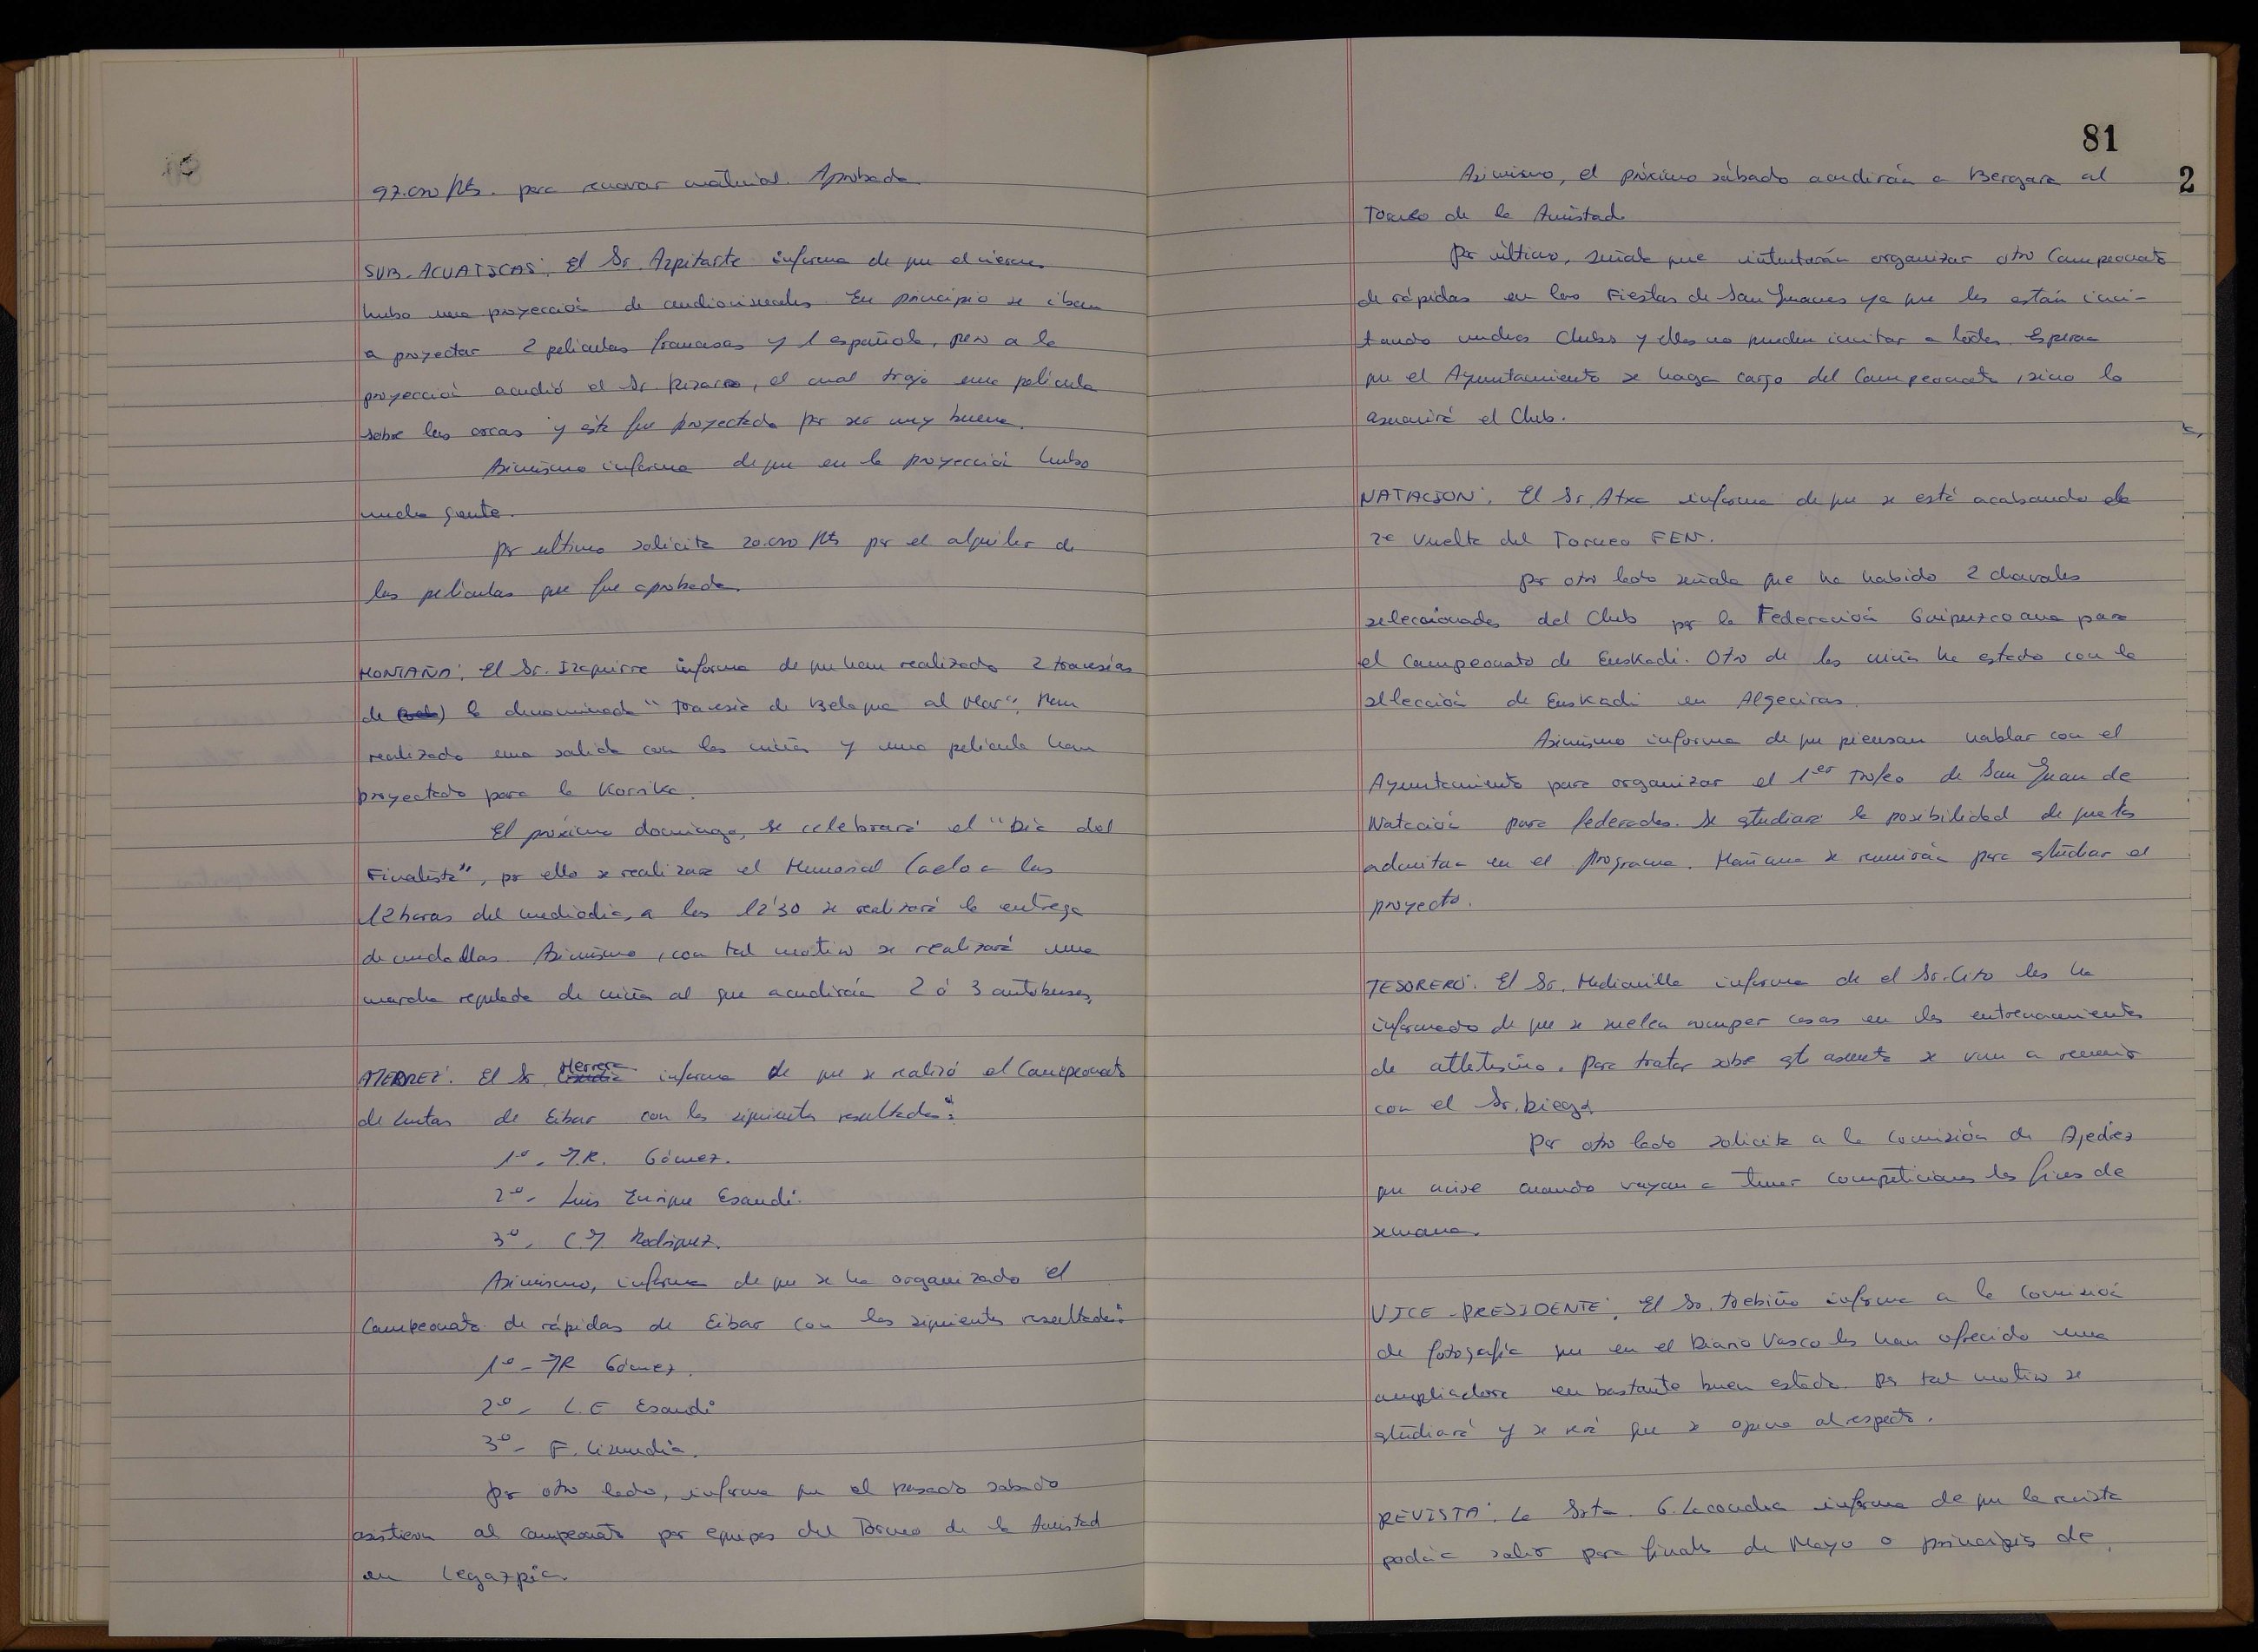 97.000 Pts. para renovar material. Aprobado.
SUB-ACUATICAS: El Sr. Azpitarte informa de que el viernes
hubo una proyección de audiovisuales. En principio se iban
a proyectar 2 películas francesas y 1 española, pero a la
proyección acudió el Sr. Pizarro, el cual trajo una película
sobre las orcas y ésta fue proyectada por ser muy buena.
Asimismo informa de que en la proyección hubo
mucha gente.
Por ultimo solicita 20.000 Pts por el alquiler de
las películas que fue aprobada.
MONTAÑA: El Sr. Izaguirre informa de que han realizado 2 travesías
de la denominada "Travesía de Belagua al Mar". Han
realizado una salida con los niños y una película han
proyectado para la Korrika.
El próximo domingo, se celebrará el "Día del
Finalista", por ello se realizará el Memorial Caelo a las
12 horas del mediodía, a las 12'30 se realizará la entrega
de medallas. Asimismo, con tal motivo se realizará una
marcha regulada de niños al que acudirán 2 ó 3 autobuses.
AJEDREZ: El Sr. Herrera informa de que se realizó el Campeonato
de Lentas de Eibar con los siguientes resultados:
1º- J.R. Gómez.
2º- Luis Enrique Esandi.
3º- C.J. Rodriguez.
Asimismo, informa de que se ha organizado el
Campeonato de rápidas de Eibar con los siguientes resultados:
1º- JR Gómez.
2º- L.E Esandi
3º- F. Lizundia.
Por otro lado, informa que el pasado sabado
asistieron al campeonato por equipos del Torneo de la Amistad
en Legazpia.
81
2
Asimismo, el próximo sábado acudirán a Bergara al
Torneo de la Amistad.
Por último, señala que intentarán organizar otro Campeonato
de rápidas en las Fiestas de San Juanes ya que les están invi-
tando muchos Clubs y ellos no pueden invitar a todos. Esperan
que el Ayuntamiento se haga cargo del Campeonato, sino lo
asumirá el Club.
NATACION: El Sr. Atxa informa de que se está acabando la
2ª Vuelta del Torneo FEN.
Por otro lado señala que ha habido 2 chavales
seleccionados del Club por la Federación Guipuzcoana para
el Campeonato de Euskadi. Otro de los niños ha estado con la
selección de Euskadi en Algeciras.
Asimismo informa de que piensan hablar con el
Ayuntamiento para organizar el 1er Trofeo de San Juan de
Natación para federados. Se estudiará la posibilidad de que los
admitan en el programa. Mañana se reunirán para estudiar el
proyecto.
TESORERO: El Sr. Mediavilla informa de el Sr. Cito les ha
informado de que se suelen romper cosas en los entrenamientos
de atletismo. Para tratar sobre este asunto se van a reunir
con el Sr. Diego.
Por otro lado solicita a la Comisión de Ajedrez
que avise cuando vayan a tener competiciones los fines de
semana.
VICE-PRESIDENTE: El Sr. Trebiño informa a la Comisión
de fotografía que en el Diario Vasco les han ofrecido una
ampliadora en bastante buen estado. Por tal motivo se
estudiará y se verá que se opina al respecto.
REVISTA: La Srta. G. Lacoucha informa de que la revista
podría salir para finales de Mayo o principios de